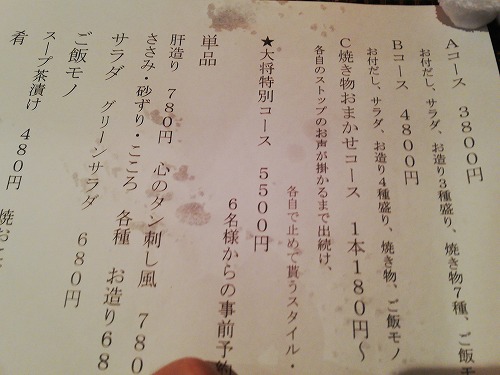 Aコース 3800円
お付だし、サラダ、お造り3種盛り、焼き物7種、ご飯モ
Bコース 4800円
お付だし、サラダ、お造り4種盛り、焼き物、ご飯モノ
C焼き物おまかせコース 1本180円~
各自のストップのお声が掛かるまで出続け、
各自で止めて貰うスタイル・
★大将特別コース 5500円
6名様からの事前予約
単品
肝造り 780円 心のタン刺し風 780
ささみ・砂ずり・こころ 各種 お造り68
サラダ グリーンサラダ 680円
ご飯モノ
スープ茶漬け 480円 焼おに
肴